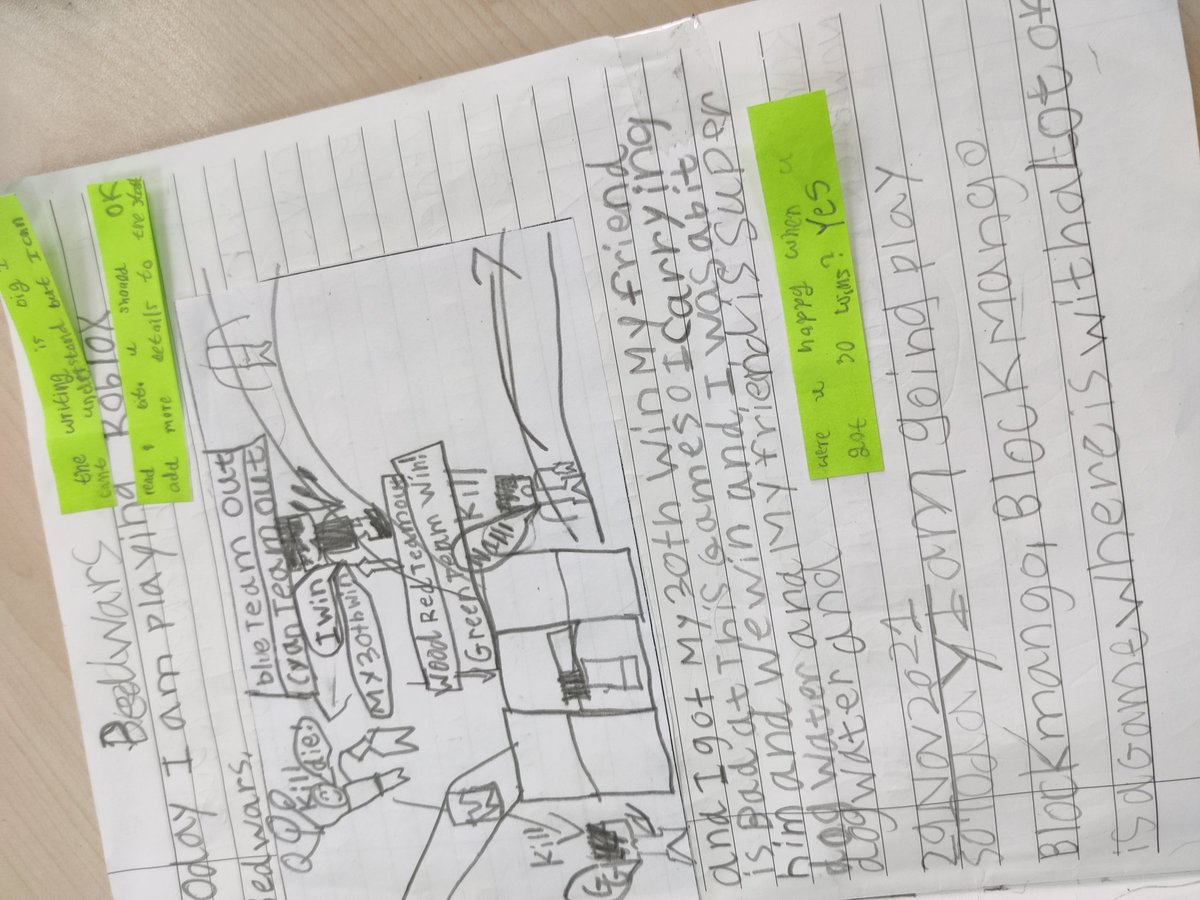 the writing is big I
cant understand but I can
read, btw u should OK
add more details to the
Bedwars
oday I am playing Roblox
edwars.
blue Team out
Cyan Team out
I win
My 30th win
Kill
die
Wood Red Team out
Green Team win!
Kill
Kill
and I got My 30th win My friend
is Bad at This games o I carrying
him and We win and I was abit
dog water and My friend is super
dog wakter and
were u happy when u
got 30 wins? Yes
29 Nov 2021
Today I am going play
Blockmango, Blockmango
is a Game where is with a lot of